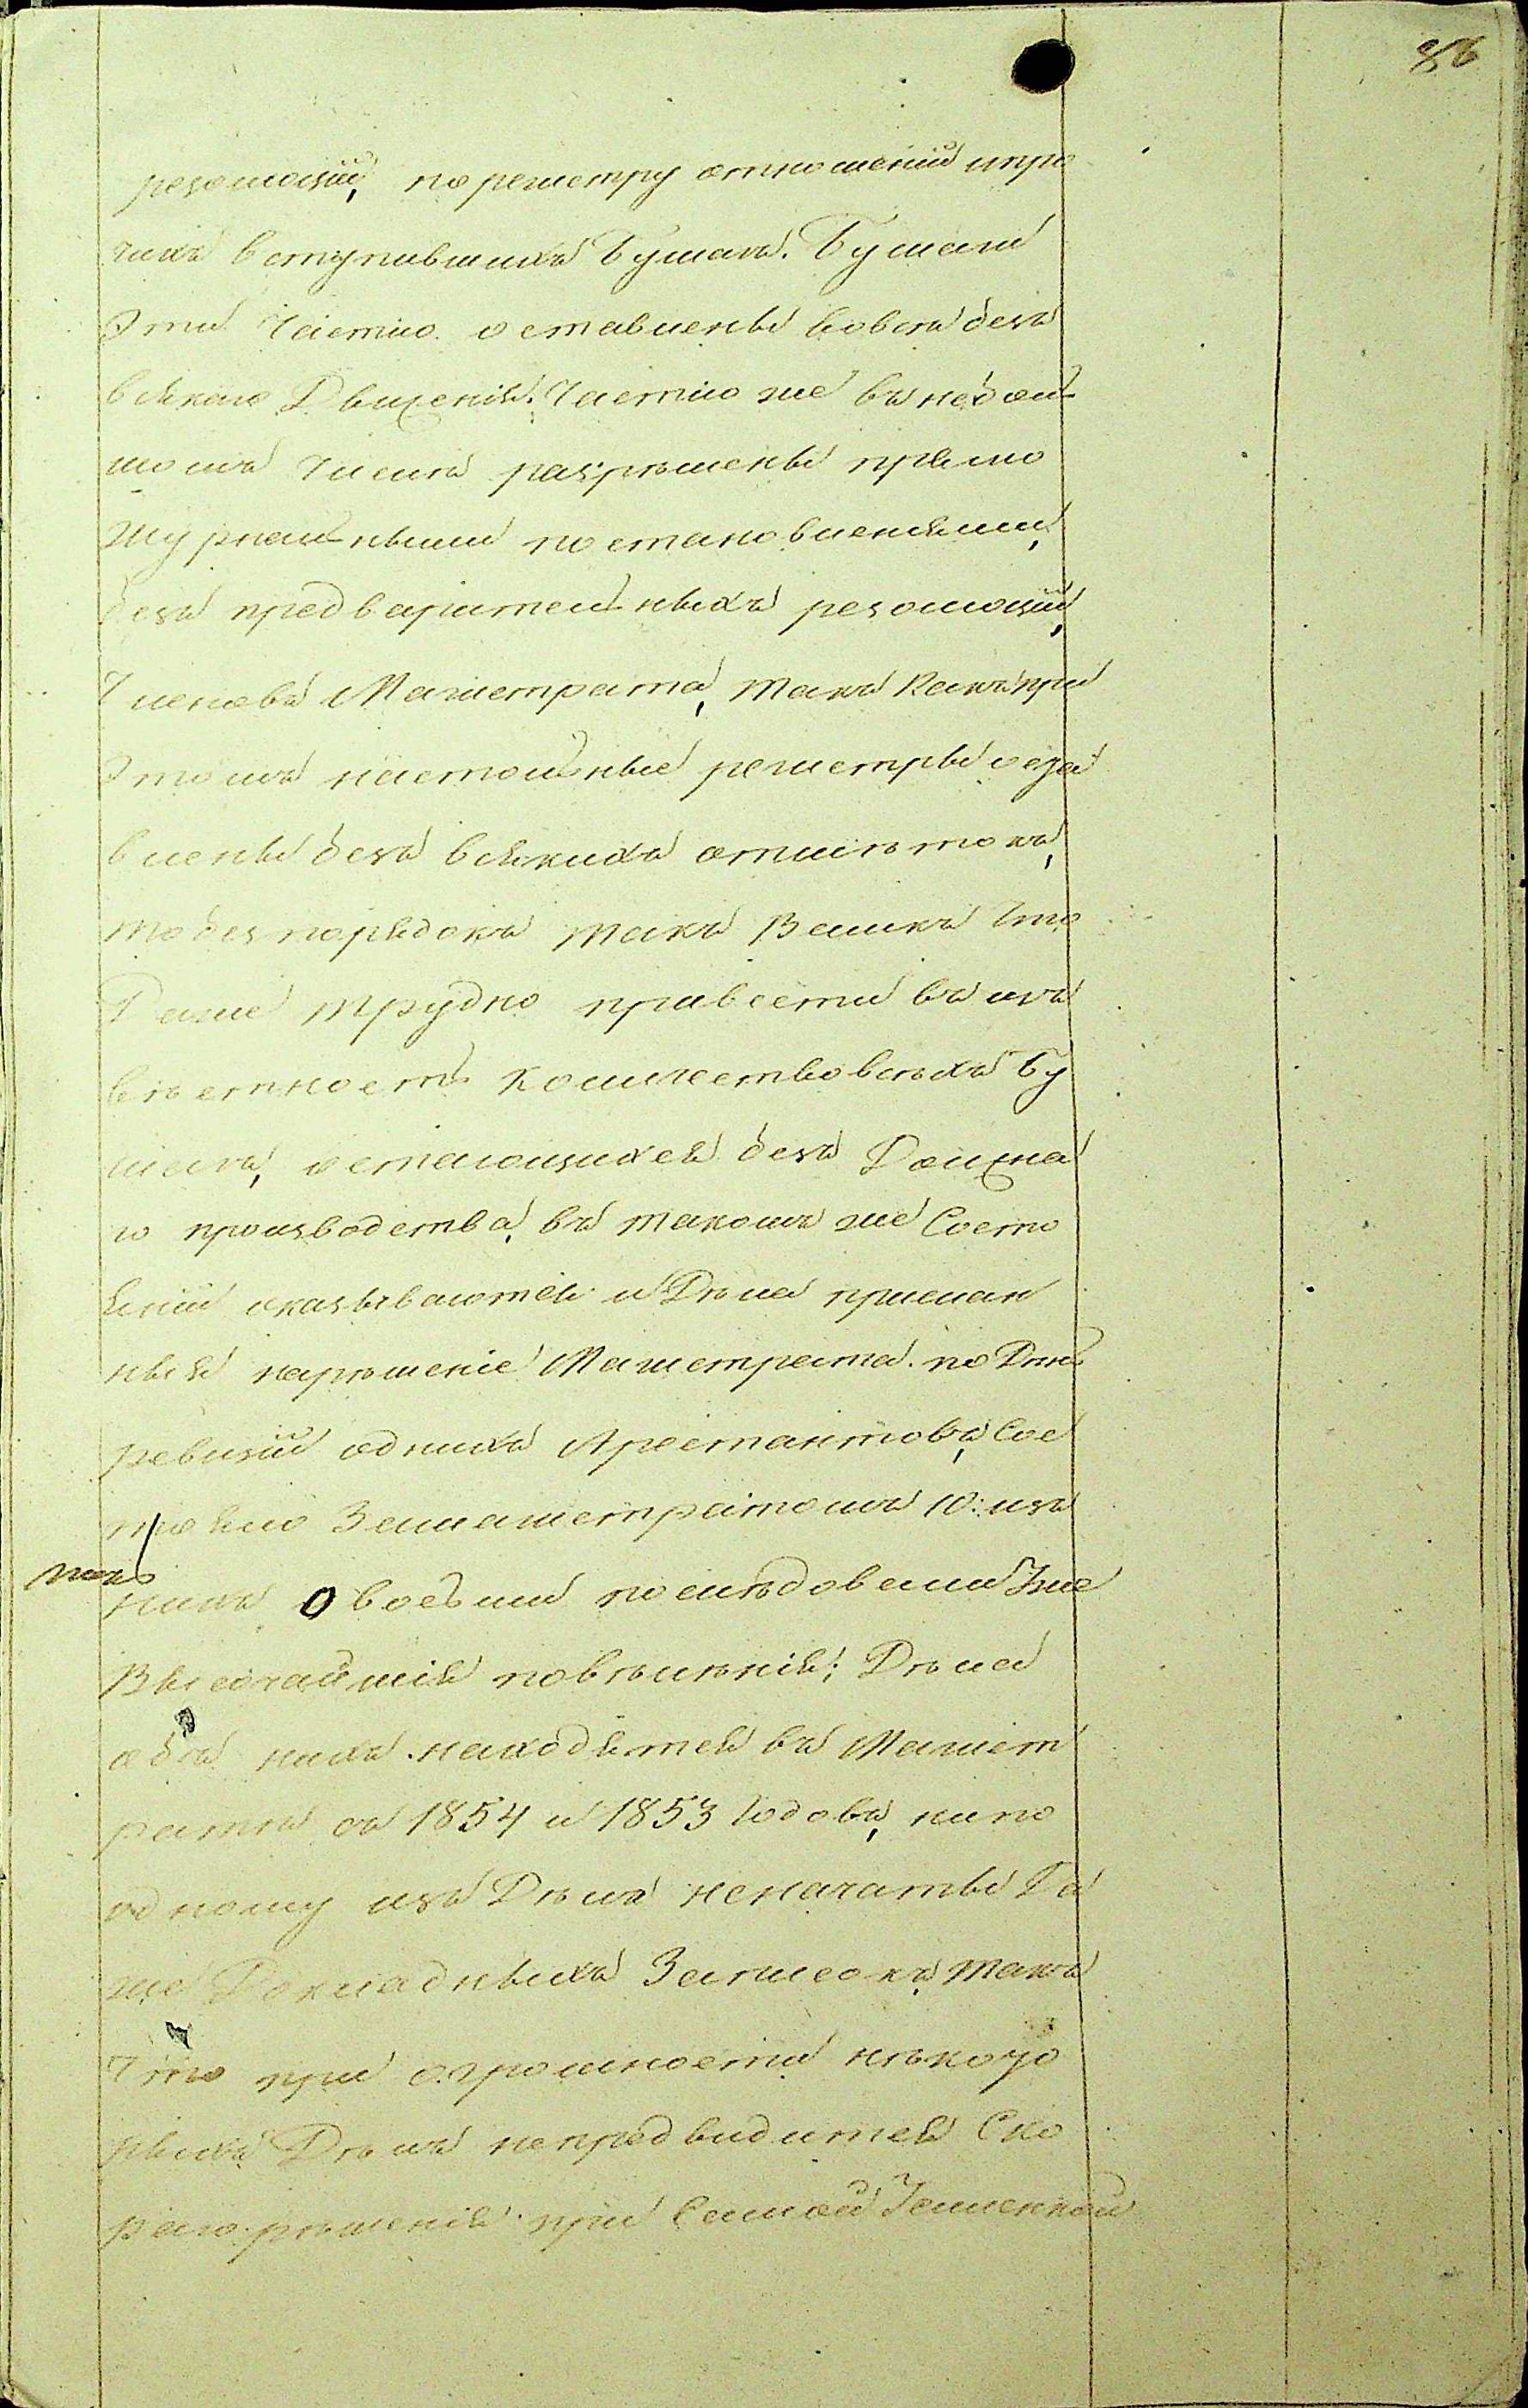 86
резолюцій, по регистру отношеній и про
чихъ вступившихъ бумагъ. Бумаги
эти частію оставлены вовсе безъ
всякаго движенія. Частію же въ неболь-
шомъ числѣ разрѣшены прямо
журнальными постановленіями,
безъ предварительныхъ резолюцій,
Членовъ Магистрата, такъ какъ при
этомъ настольные регистры оста
влены безъ всякихъ отмѣтокъ,
то безпорядокъ такъ великъ что
даже трудно привести въ из
вѣстность количество всѣхъ бу
магъ, остающихся безъ должна
го производства, въ такомъ же состо
яніи оказываются и дѣла присылан
ныя на рѣшеніе Магистрата. по день
ревизіи однихъ Арестантовъ, сос
тояло за магистратомъ 10: изъ
нихъ о восьми послѣдовали уже
токмо
Высочайшія повѣлѣнія; Дѣла
объ нихъ находятся въ Магист
ратѣ съ 1854 и 1853 годовъ, ни по
одному изъ дѣлъ не начаты да
же докладныхъ записокъ, такъ
что при огромности нѣкото
рыхъ дѣлъ непредвидится ско
раго рѣшенія при самой усиленной